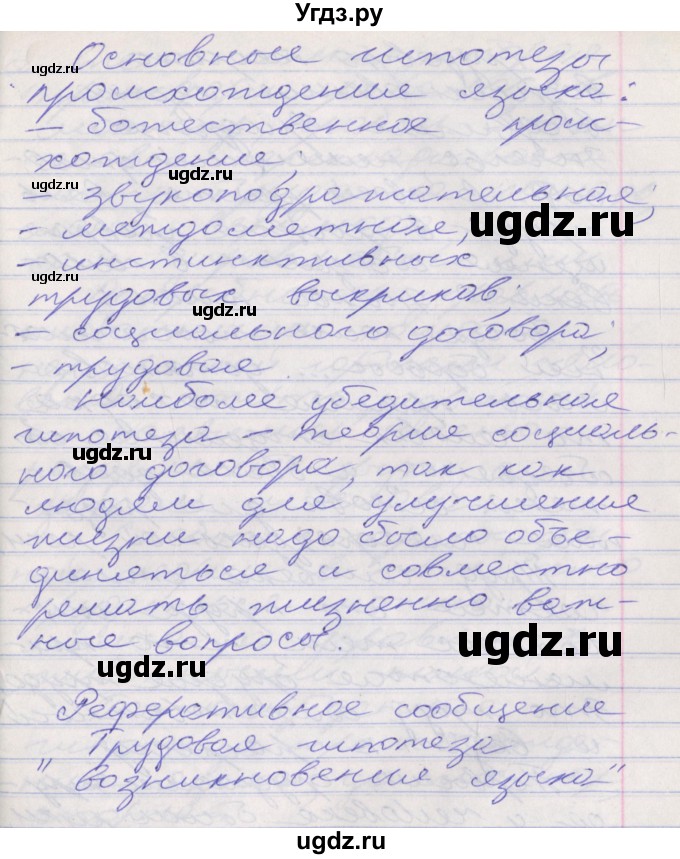 Угдз.ру
Основные гипотезы
происхождения языка:
– божественное проис-
хождение;
– звукоподражательная;
– междометная,
– инстинктивных
трудовых выкриков;
– социального договора;
– трудовая.
Наиболее убедительная
гипотеза – теория социаль-
ного договора, так как
людям для улучшения
жизни надо было объе-
диняться и совместно
решать жизненно важ-
ные вопросы.
Реферативное сообщение
"Трудовая гипотеза
возникновения языка"
ugdz.ru
ugdz.ru
ugdz.ru
ugdz.ru
ugdz.ru
ugdz.ru
ugdz.ru
ugdz.ru
ugdz.ru
ugdz.ru
ugdz.ru